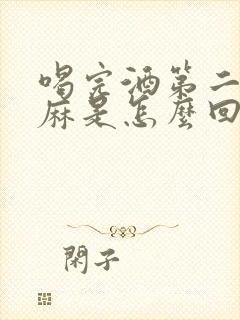 喝完酒第二
麻是怎麼回
閑子